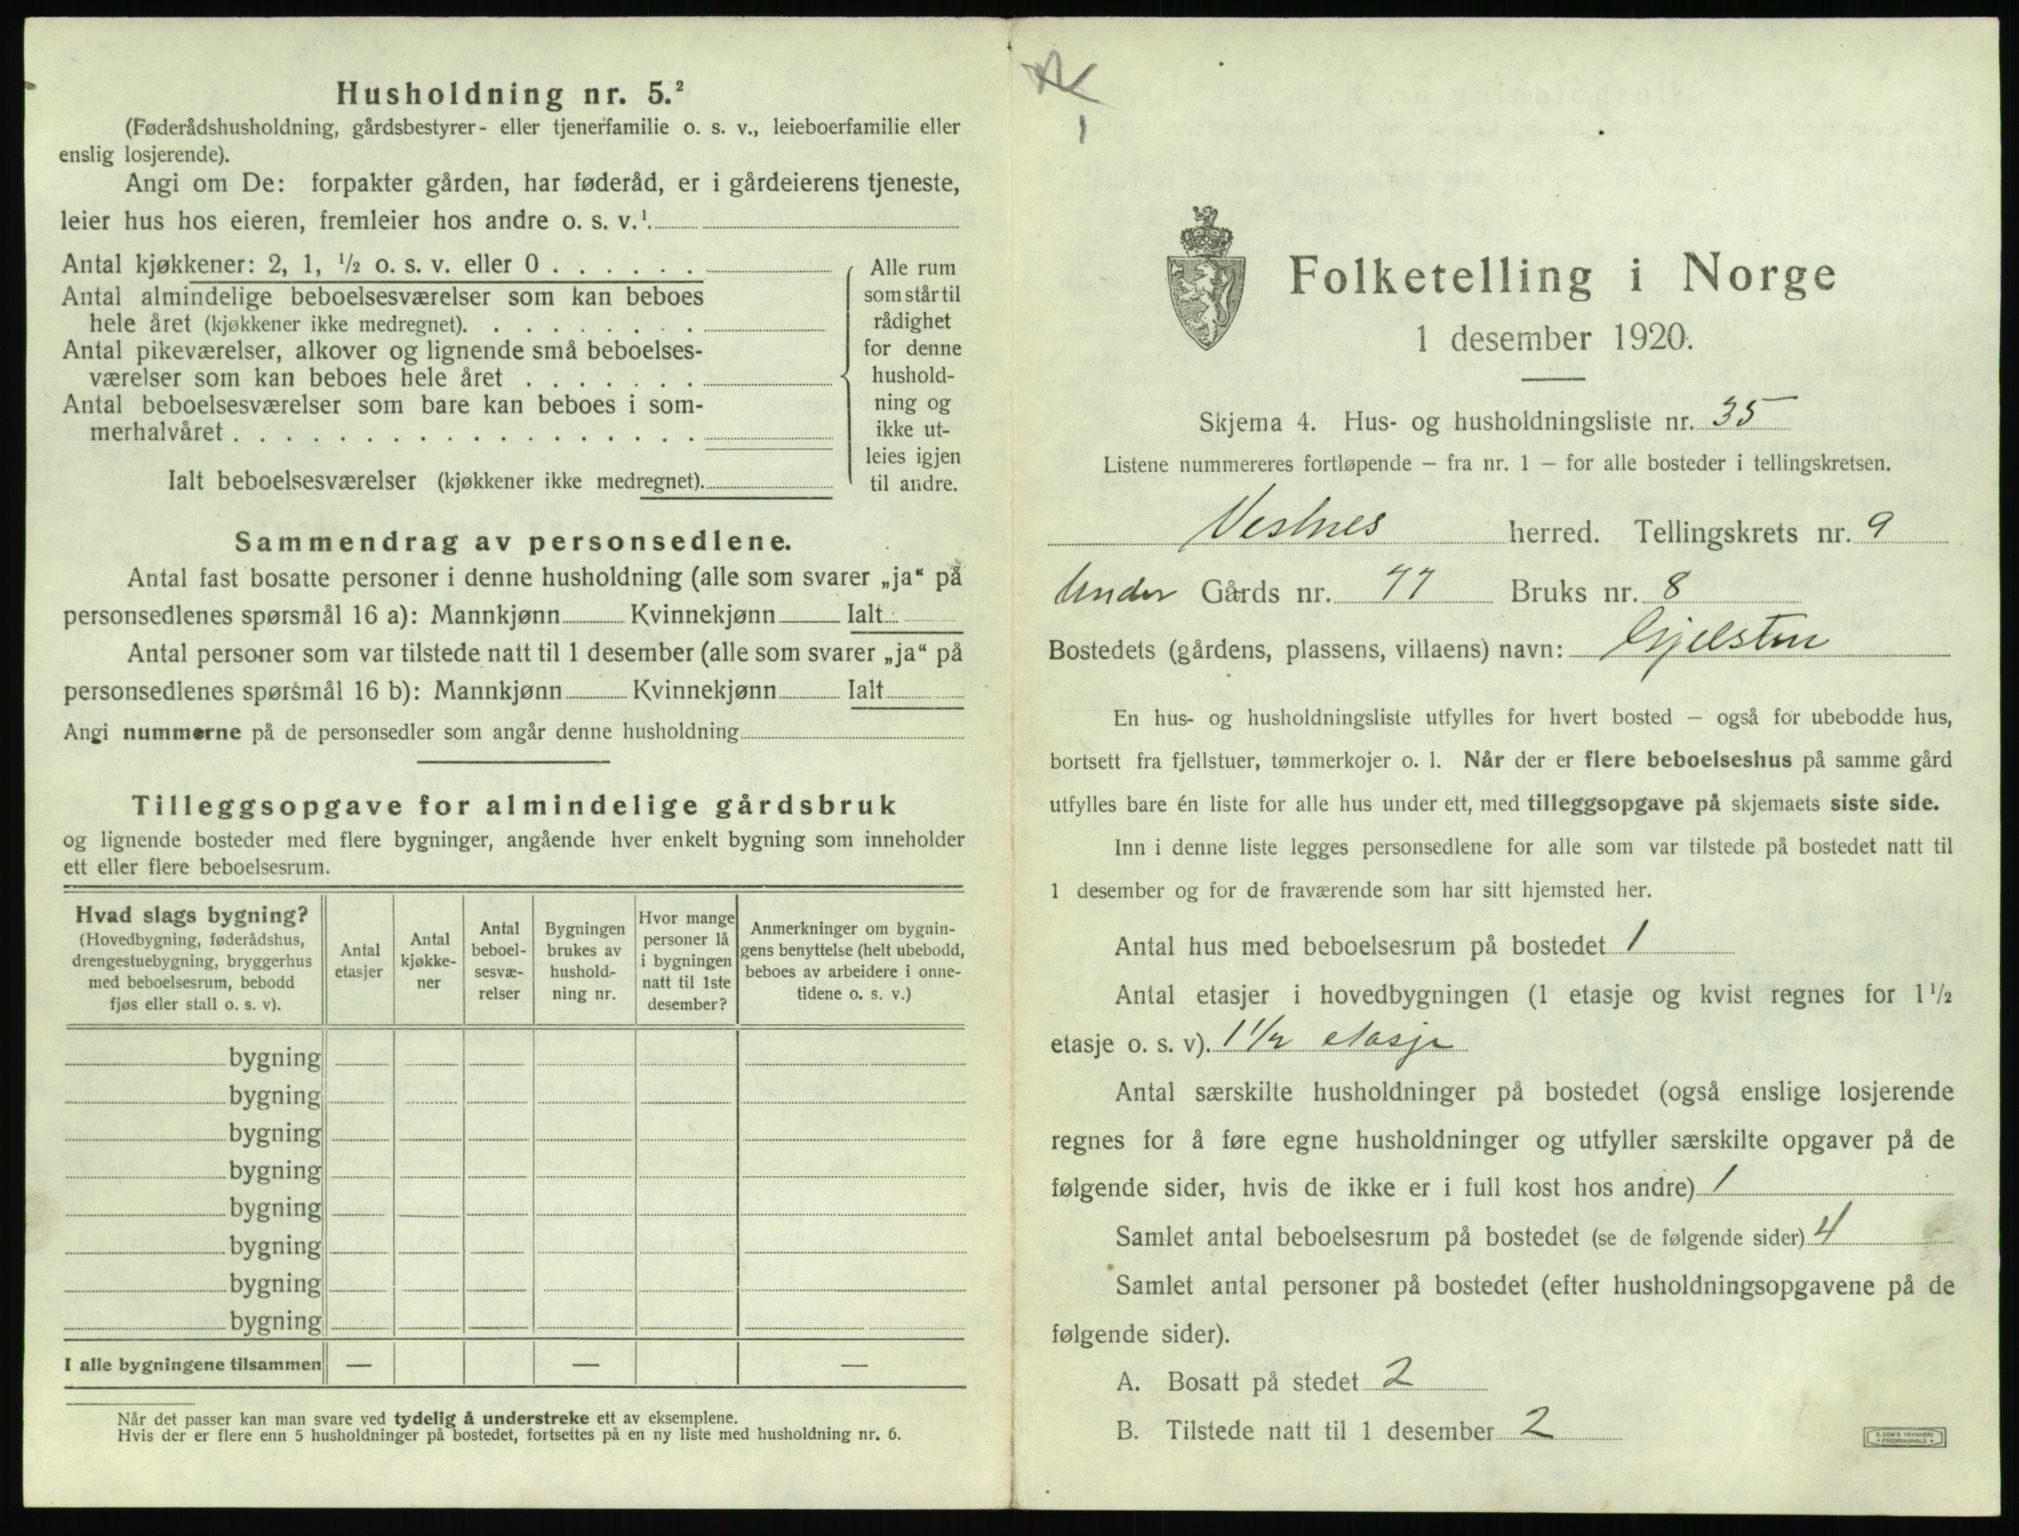 Husholdning nr. 5.²
(Føderådshusholdning, gårdsbestyrer- eller tjenerfamilie o. s. v., leieboerfamilie eller
enslig losjerende).
Angi om De: forpakter gården, har føderåd, er i gårdeierens tjeneste,
leier hus hos eieren, fremleier hos andre o. s. v.¹
Antal kjøkkener: 2, 1, ½ o. s. v. eller 0 . . . . . .
Antal almindelige beboelsesværelser som kan beboes
hele året (kjøkkener ikke medregnet). . . . . . . . .
Antal pikeværelser, alkover og lignende små beboelses-
værelser som kan beboes hele året . . . . . . .
Antal beboelsesværelser som bare kan beboes i som-
merhalvåret . . . . . . . . . . . . . . . . . .
Ialt beboelsesværelser (kjøkkener ikke medregnet).
Alle rum
som står til
rådighet
for denne
hushold-
ning og
ikke ut-
leies igjen
til andre.
Sammendrag av personsedlene.
Antal fast bosatte personer i denne husholdning (alle som svarer „ja“ på
personsedlenes spørsmål 16 a): Mannkjønn Kvinnekjønn Ialt
Antal personer som var tilstede natt til 1 desember (alle som svarer „ja“ på
personsedlenes spørsmål 16 b): Mannkjønn Kvinnekjønn Ialt
Angi nummerne på de personsedler som angår denne husholdning
Tilleggsopgave for almindelige gårdsbruk
og lignende bosteder med flere bygninger, angående hver enkelt bygning som inneholder
ett eller flere beboelsesrum.
Hvad slags bygning?
(Hovedbygning, føderådshus,
drengestuebygning, bryggerhus
med beboelsesrum, bebodd
fjøs eller stall o. s. v).
Antal
etasjer
Antal
kjøkke-
ner
Antal
beboel-
sesvæ-
relser
Bygningen
brukes av
hushold-
ning nr.
Hvor mange
personer lå
i bygningen
natt til 1ste
desember?
Anmerkninger om bygnin-
gens benyttelse (helt ubebodd,
beboes av arbeidere i onne-
tidene o. s. v.)
bygning
bygning
bygning
bygning
bygning
bygning
bygning
bygning
I alle bygningene tilsammen — — —
Når det passer kan man svare ved tydelig å understreke ett av eksemplene.
Hvis der er flere enn 5 husholdninger på bostedet, fortsettes på en ny liste med husholdning nr. 6.
1
Folketelling i Norge
1 desember 1920.
Skjema 4. Hus- og husholdningsliste nr. 35
Listene nummereres fortløpende – fra nr. 1 – for alle bosteder i tellingskretsen.
Vestnes herred. Tellingskrets nr. 9
Under Gårds nr. 77 Bruks nr. 8
Bostedets (gårdens, plassens, villaens) navn: Gjelsten
En hus- og husholdningsliste utfylles for hvert bosted – også for ubebodde hus,
bortsett fra fjellstuer, tømmerkojer o. l. Når der er flere beboelseshus på samme gård
utfylles bare én liste for alle hus under ett, med tilleggsopgave på skjemaets siste side.
Inn i denne liste legges personsedlene for alle som var tilstede på bostedet natt til
1 desember og for de fraværende som har sitt hjemsted her.
Antal hus med beboelsesrum på bostedet 1
Antal etasjer i hovedbygningen (1 etasje og kvist regnes for 1½
etasje o. s. v). 1½ etasje
Antal særskilte husholdninger på bostedet (også enslige losjerende
regnes for å føre egne husholdninger og utfyller særskilte opgaver på de
følgende sider, hvis de ikke er i full kost hos andre) 1
Samlet antal beboelsesrum på bostedet (se de følgende sider) 4
Samlet antal personer på bostedet (efter husholdningsopgavene på de
følgende sider).
A. Bosatt på stedet 2
B. Tilstede natt til 1 desember 2